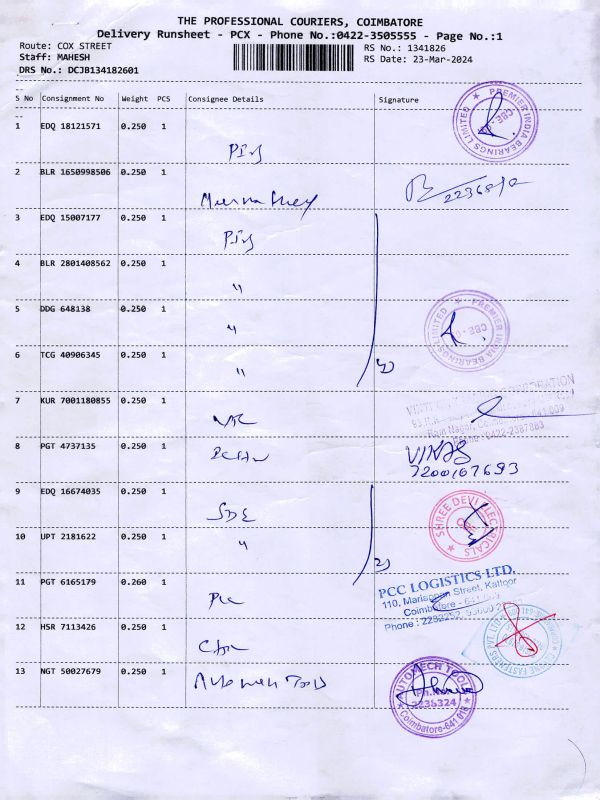 THE PROFESSIONAL COURIERS, COIMBATORE
Delivery Runsheet - PCX - Phone No.:0422-3505555 - Page No.:1
Route: COX STREET
Staff: MAHESH
DRS No.: DCJB134182601
RS No.: 1341826
RS Date: 23-Mar-2024
S No Consignment No Weight PCS Consignee Details Signature
1 EDQ 18121571 0.250 1
PREMIER INDIA BEARINGS LIMITED
2 BLR 1650998506 0.250 1
3 EDQ 15007177 0.250 1
4 BLR 2801408562 0.250 1
"
5 DDG 648138 0.250 1
"
PREMIER INDIA BEARINGS LIMITED
6 TCG 40906345 0.250 1
"
7 KUR 7001180855 0.250 1
8 PGT 4737135 0.250 1
VIKAS
7200107693
9 EDQ 16674035 0.250 1
SDE
SHREE DEVI ELECTRICALS
10 UPT 2181622 0.250 1
"
11 PGT 6165179 0.260 1
PCC
PCC LOGISTICS LTD.
110, Mariappan Street, Kattoor
Coimbatore -
12 HSR 7113426 0.250 1
13 NGT 50027679 0.250 1
AUTOMECH TOOLS
Ph:
2235324
Coimbatore-641 018